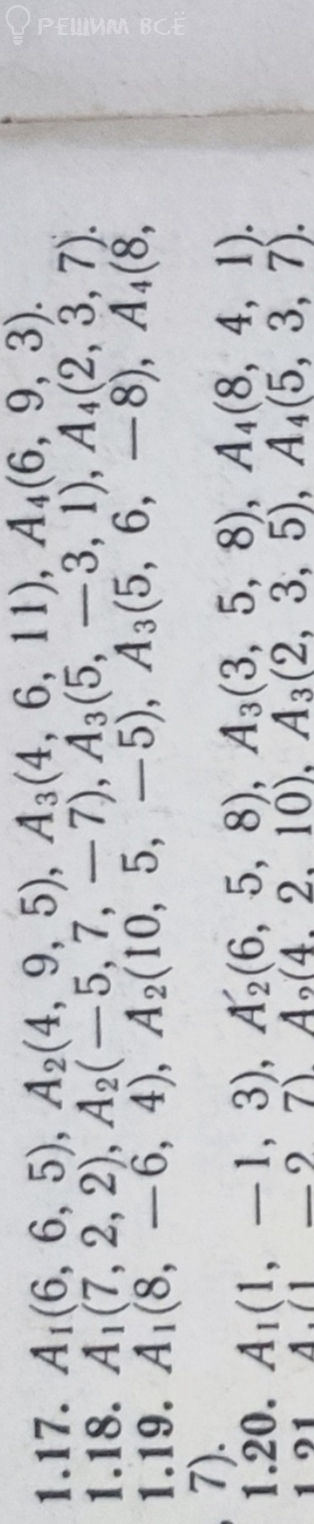 РЕШИМ ВСЁ
1.17. A₁(6, 6, 5), A₂(4, 9, 5), A₃(4, 6, 11), A₄(6, 9, 3).
1.18. A₁(7, 2, 2), A₂(−5, 7, −7), A₃(5, −3, 1), A₄(2, 3, 7).
1.19. A₁(8, −6, 4), A₂(10, 5, −5), A₃(5, 6, −8), A₄(8,
7).
1.20. A₁(1, −1, 3), A₂(6, 5, 8), A₃(3, 5, 8), A₄(8, 4, 1).
1.21. A₁(1, −2, 7), A₂(4, 2, 10), A₃(2, 3, 5), A₄(5, 3, 7).